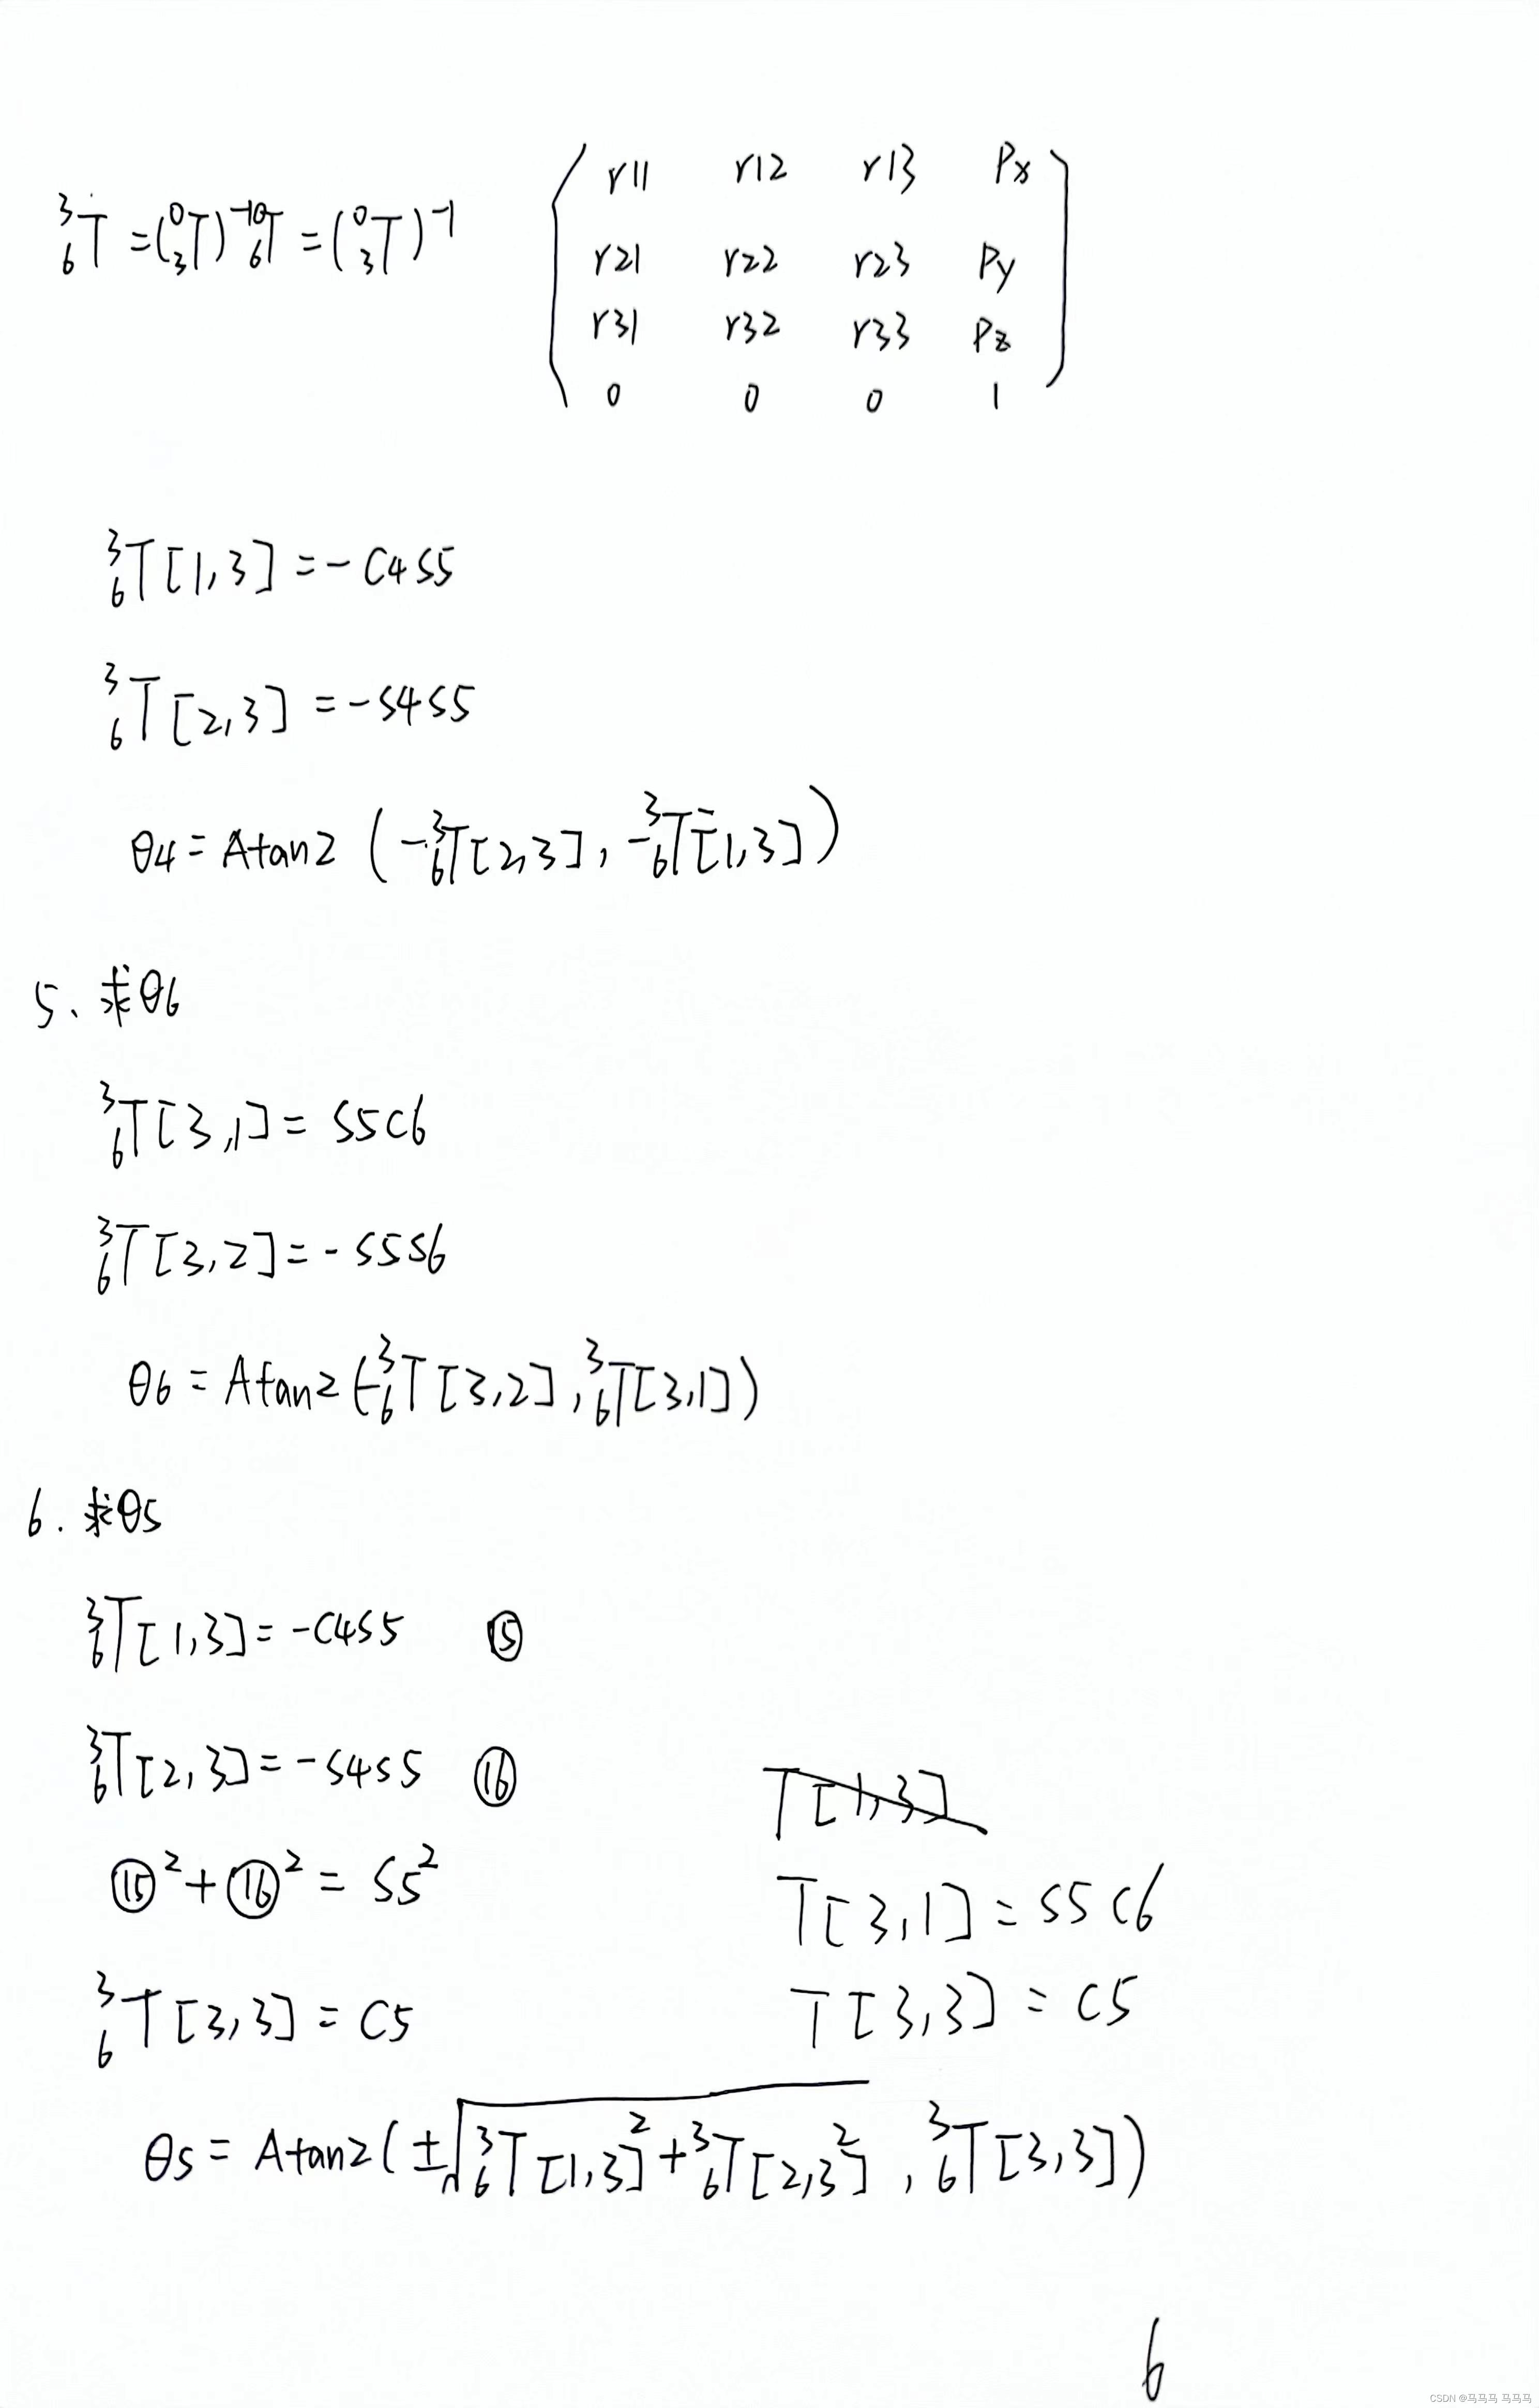 ³₆T = (⁰₃T)⁻¹⁰₆T = (⁰₃T)⁻¹
r11 r12 r13 Px
r21 r22 r23 Py
r31 r32 r33 Pz
0 0 0 1
³₆T[1,3] = -C4S5
³₆T[2,3] = -S4S5
θ4 = Atan2(-³₆T[2,3], -³₆T[1,3])
5、求θ6
³₆T[3,1] = S5C6
³₆T[3,2] = -S5S6
θ6 = Atan2(-³₆T[3,2], ³₆T[3,1])
6. 求θ5
³₆T[1,3] = -C4S5 ⑮
³₆T[2,3] = -S4S5 ⑯
⑮² + ⑯² = S5²
³₆T[3,3] = C5
T[1,3]
T[3,1] = S5C6
T[3,3] = C5
θ5 = Atan2(±√³₆T[1,3]² + ³₆T[2,3]², ³₆T[3,3])
6
CSDN @马马马 马马马